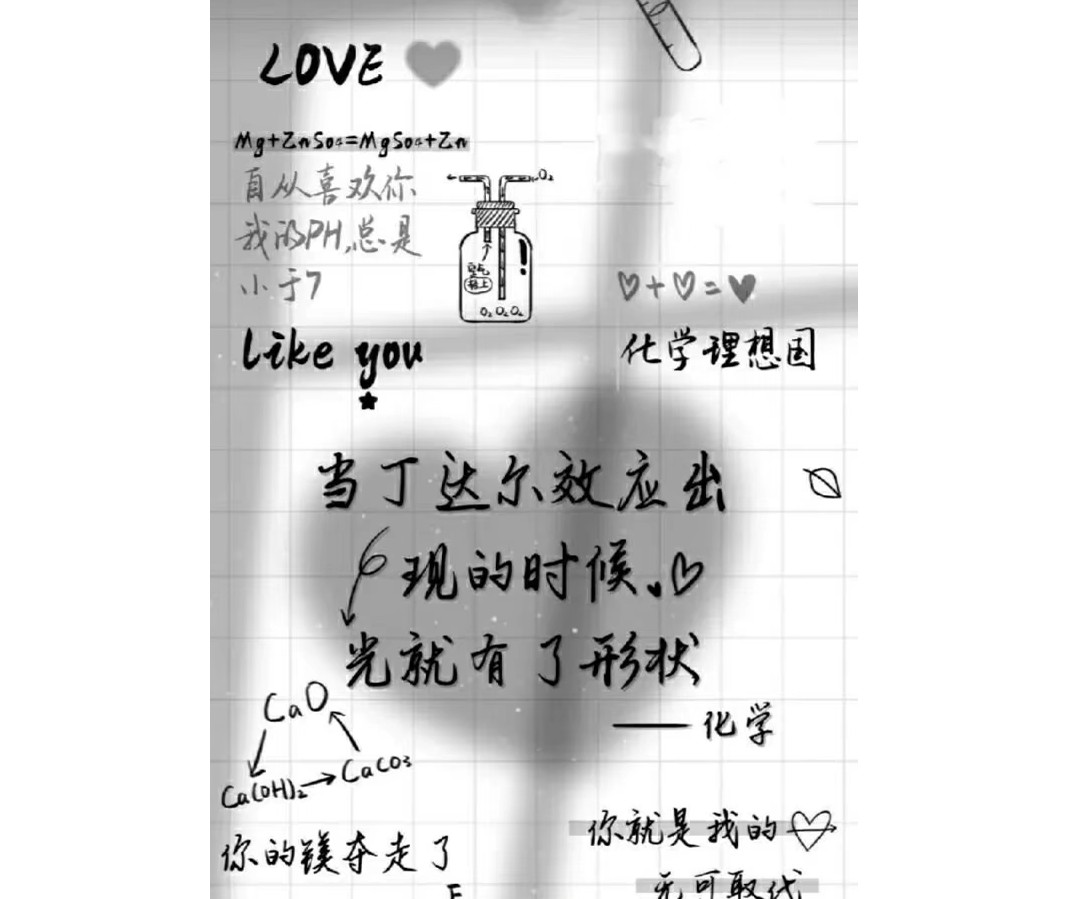 LOVE
Mg+ZnSO₄=MgSO₄+Zn
自从喜欢你
我的PH,总是
小于7
O₂
空气
O₂ O₂ O₂
Like you
+ =
化学理想国
当丁达尔效应出
现的时候.
光就有了形状
——化学
CaO
Ca(OH)₂→CaCO₃
你的镁夺走了
你就是我的
无可取代